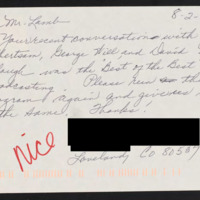 8-2-
Mr. Lamb
Your recent conversations with
ertson, George Will, and David
augh was the Best of the Best
odcasting. Please run the this
ogram again and give us
the same, Thanks!
nice
Loveland, Co 80537